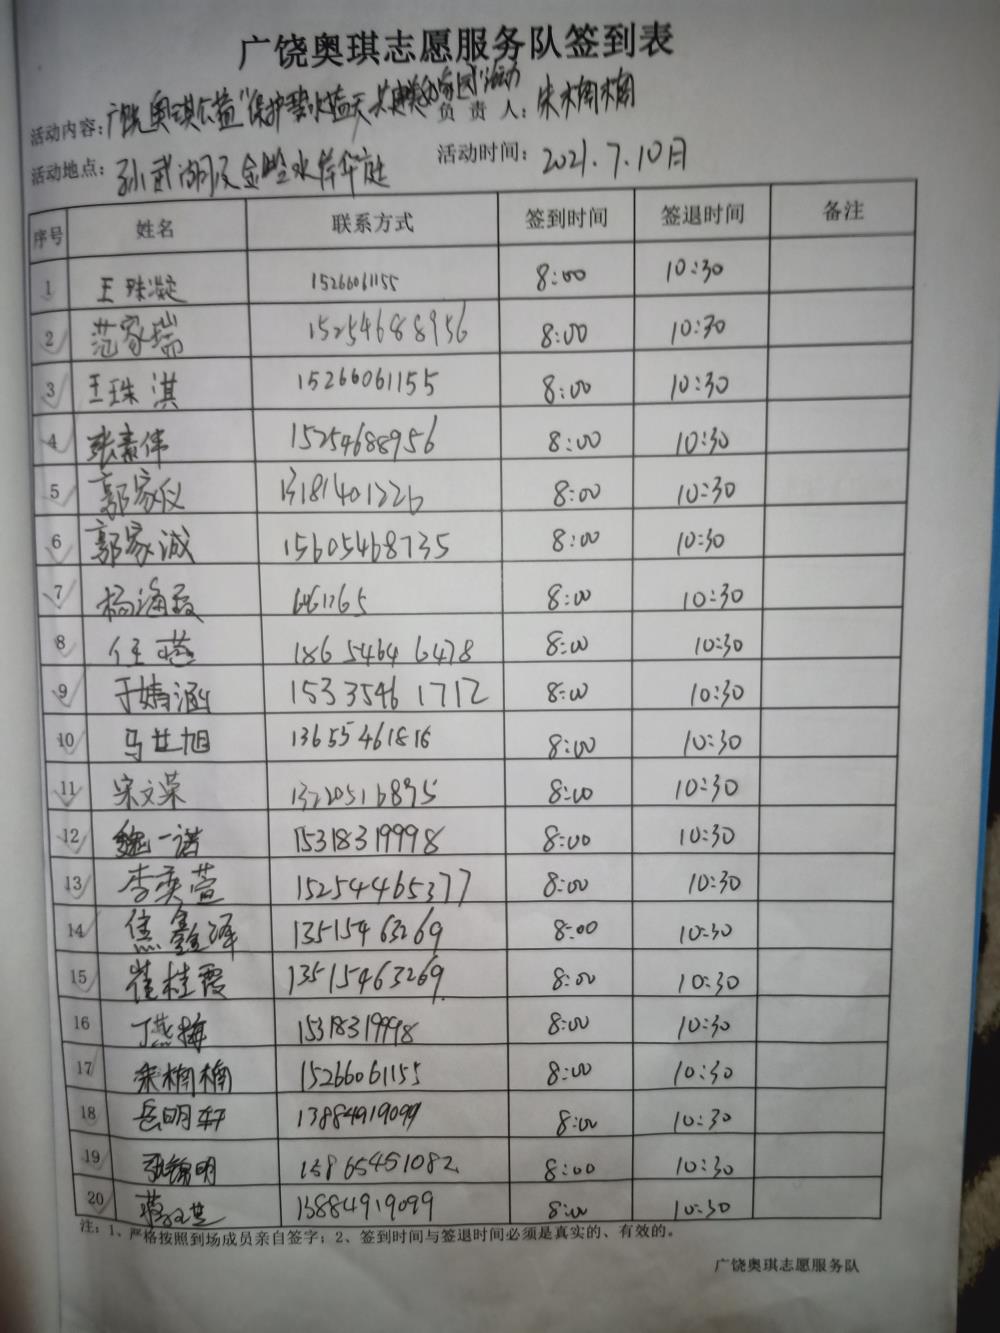 广饶奥琪志愿服务队签到表
活动内容：广饶奥琪公益"保护碧水蓝天 共建美好家园"活动 负责人：朱楠楠
活动地点：孙武湖及金岭水岸华庭 活动时间：2021.7.10日
序号 姓名 联系方式 签到时间 签退时间 备注
1 王珠凝 15266061155 8:00 10:30
2 范家瑞 15254688956 8:00 10:30
3 王珠淇 15266061155 8:00 10:30
4 张素伟 15254688956 8:00 10:30
5 郭家仪 13181401226 8:00 10:30
6 郭家诚 15605468735 8:00 10:30
7 杨海霞 661765 8:00 10:30
8 任燕 18654646478 8:00 10:30
9 于婧涵 15335461712 8:00 10:30
10 马世旭 13655461816 8:00 10:30
11 宋文荣 13220516895 8:00 10:30
12 魏一诺 15318319998 8:00 10:30
13 李奕萱 15254465377 8:00 10:30
14 焦鑫泽 13515463269 8:00 10:30
15 崔桂霞 13515463269 8:00 10:30
16 丁燕梅 15318319998 8:00 10:30
17 朱楠楠 15266061155 8:00 10:30
18 岳明轩 13884919099 8:00 10:30
19 张锦明 13865451082 8:00 10:30
20 13884919099 8:00 10:30
注：1、严格按照到场成员亲自签字；2、签到时间与签退时间必须是真实的、有效的。
广饶奥琪志愿服务队